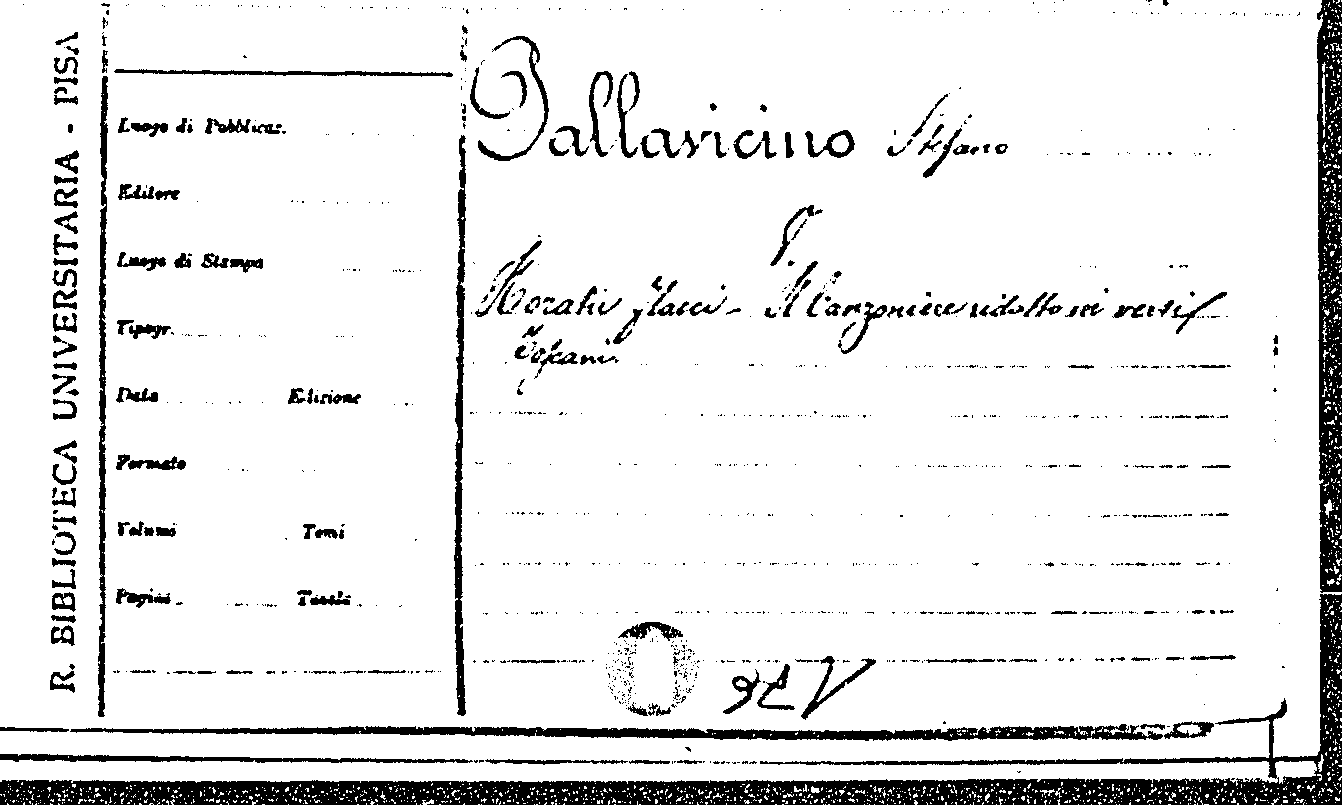 R. BIBLIOTECA UNIVERSITARIA - PISA
Luogo di Pubblicaz.
Editore
Luogo di Stampa
Tipogr.
Data Edizione
Formato
Volumi Tomi
Pagine Tavole
Pallavicino Stefano
V.
Horatii Flacci - Il Canzoniere ridotto in versi
Toscani.